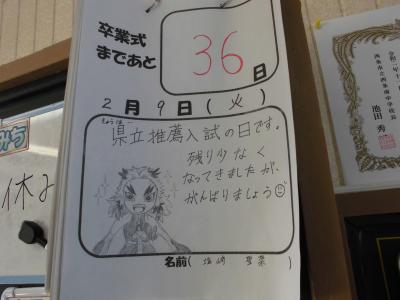 卒業式
まであと
36
日
2月9日(火)
きょうは…
県立推薦入試の日です。
残り少なく
なってきましたが、
がんばりましょう
名前(
休み
池田 秀